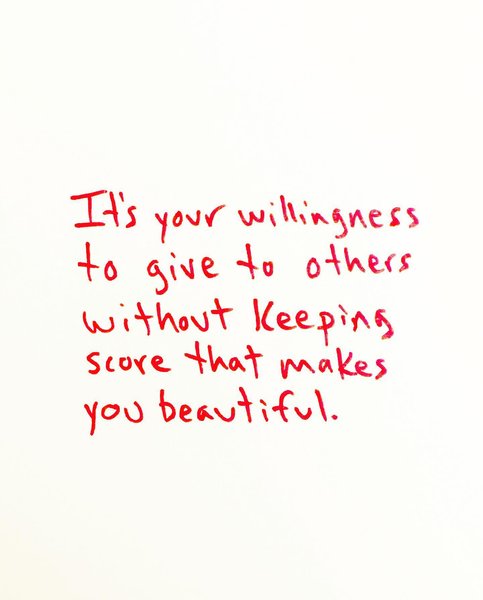 It's your willingness
to give to others
without keeping
score that makes
you beautiful.